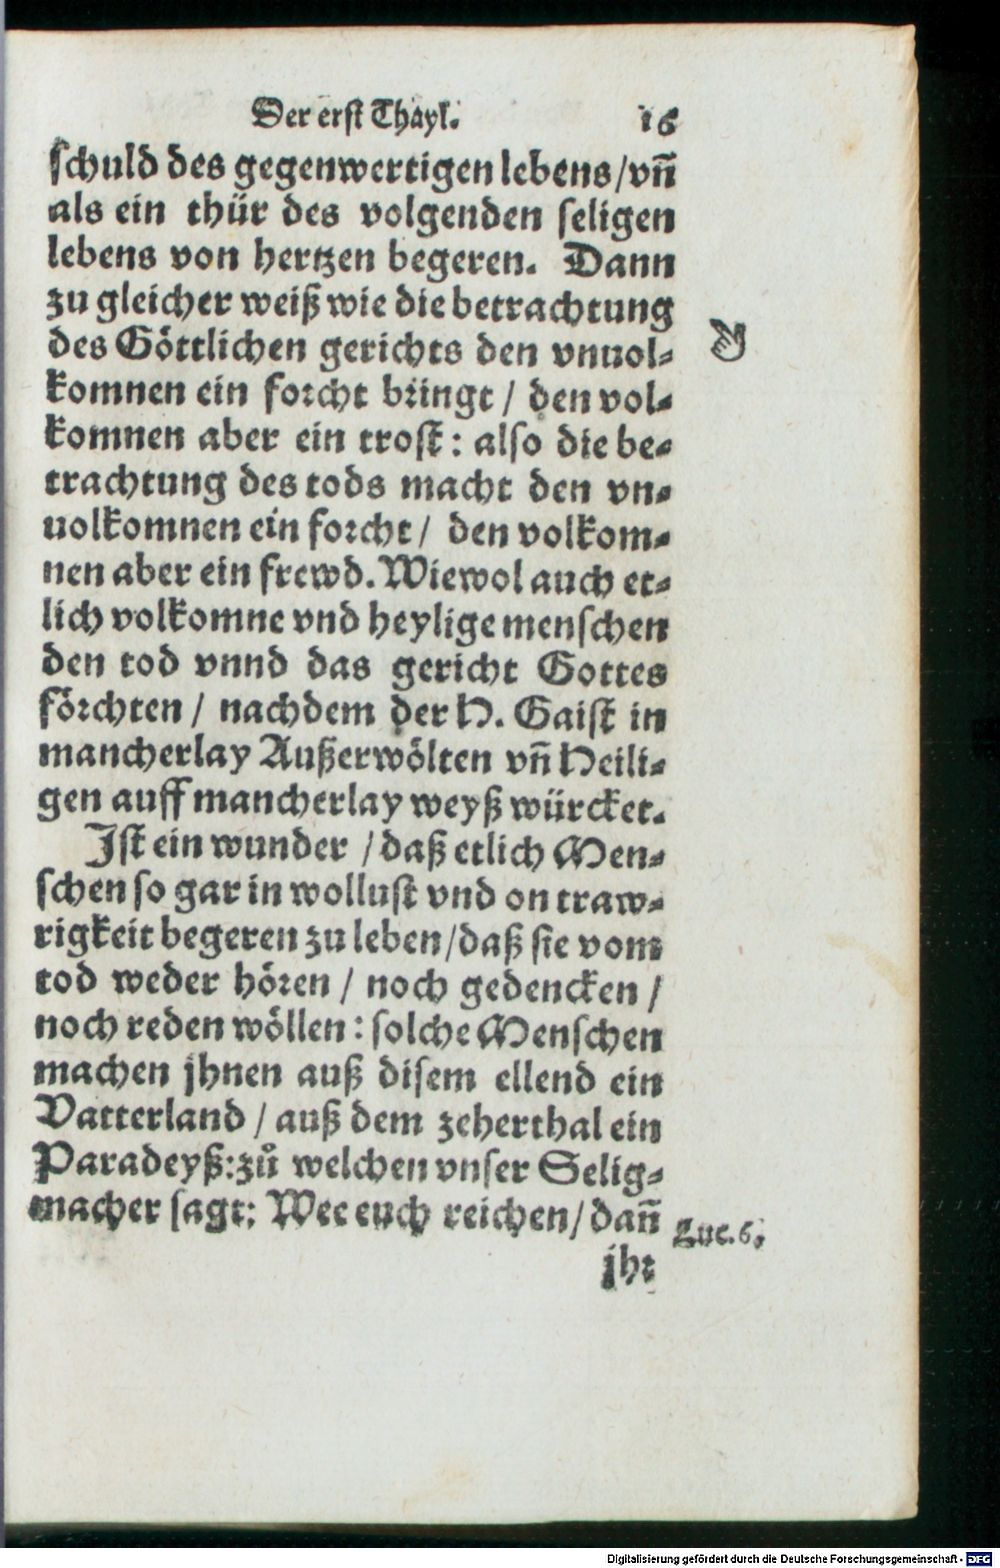 Der erst Thayl. 16
schuld des gegenwertigen lebens/vñ
als ein thür des volgenden seligen
lebens von hertzen begeren. Dann
zu gleicher weiß wie die betrachtung
des Göttlichen gerichts den vnuol⸗
komnen ein forcht bringt / den vol⸗
komnen aber ein trost: also die be⸗
trachtung des tods macht den vn⸗
uolkomnen ein forcht/ den volkom⸗
nen aber ein frewd. Wiewol auch et⸗
lich volkomne vnd heylige menschen
den tod vnnd das gericht Gottes
förchten / nachdem der H. Gaist in
mancherlay Außerwölten vñ Heili⸗
gen auff mancherlay weyß würcket.
Ist ein wunder /daß etlich Men⸗
schen so gar in wollust vnd on traw⸗
rigkeit begeren zu leben/daß sie vom
tod weder hören / noch gedencken /
noch reden wöllen: solche Menschen
machen jhnen auß disem ellend ein
Vatterland / auß dem zeherthal ein
Paradeyß:zů welchen vnser Selig⸗
macher sagt: Wee euch reichen/ dañ
Luc. 6.
jhr
Digitalisierung gefördert durch die Deutsche Forschungsgemeinschaft - DFG